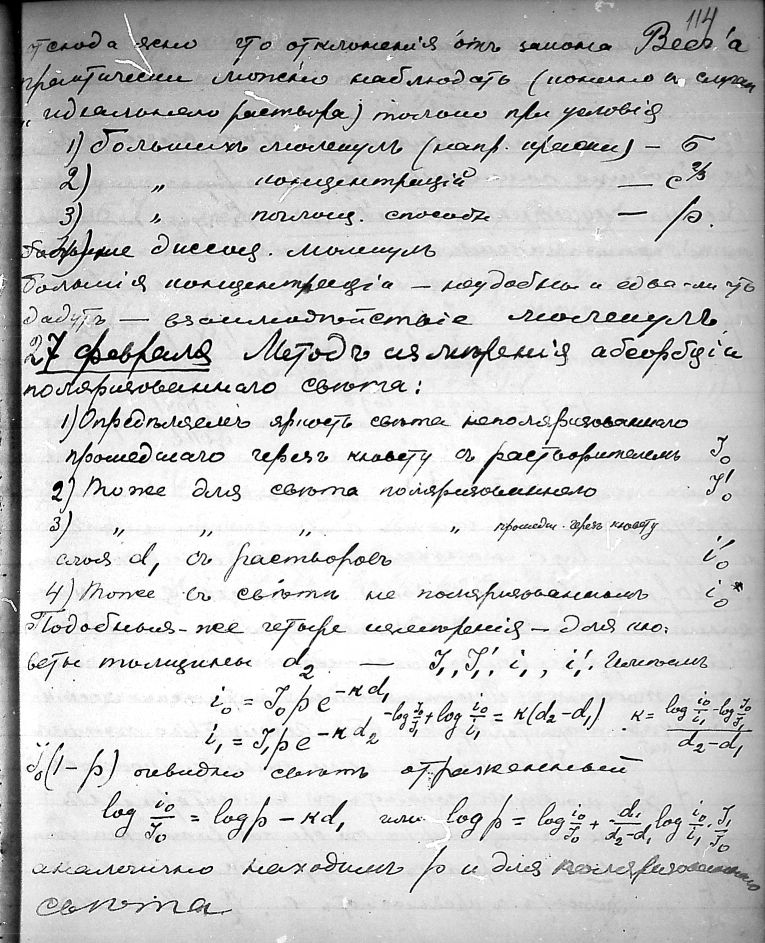 114
отсюда ясно что отклоненія отъ закона Beer'a
практически можно наблюдать (помимо случая
"идеальнаго раствора) только при условія
1) большихъ молекулъ (напр. краски) — Б
2) " концентрацій — c^2/3
3) " поглощ. способн. — p.
диссоц. молекул
большія концентраціи — неудобны и едва-ли чть
дадутъ — взаимодѣйствіе молекулъ
27 февраля Методъ измѣренія абсорбціи
поляризованнаго свѣта:
1) Опредѣляемъ яркость свѣта неполяризованнаго
прошедшаго черезъ кювету съ растворителемъ J₀
2) Тоже для свѣта поляризованнаго J₀'
3) " " " " прошедш. черезъ кювету
слоя d₁ съ растворомъ i₀'
4) Тоже съ свѣтомъ не поляризованнымъ i₀*
Подобныя-же четыре измѣренія — для кю-
веты толщины d₂ — J₁, J₁', i₁, i₁'. Имѣемъ
i₀ = J₀pe^-κd₁
i₁ = J₁pe^-κd₂ -log J₀/J₁ + log i₀/i₁ = κ(d₂-d₁) κ = (log i₀/i₁ - log J₀/J₁)/(d₂-d₁)
J₀(1-p) очевидно свѣтъ отраженный
log i₀/J₀ = log p - κd₁ или log p = log i₀/J₀ + d₁/(d₂-d₁) log i₀/i₁ · J₁/J₀
аналогично находимъ p и для поляризованнаго
свѣта